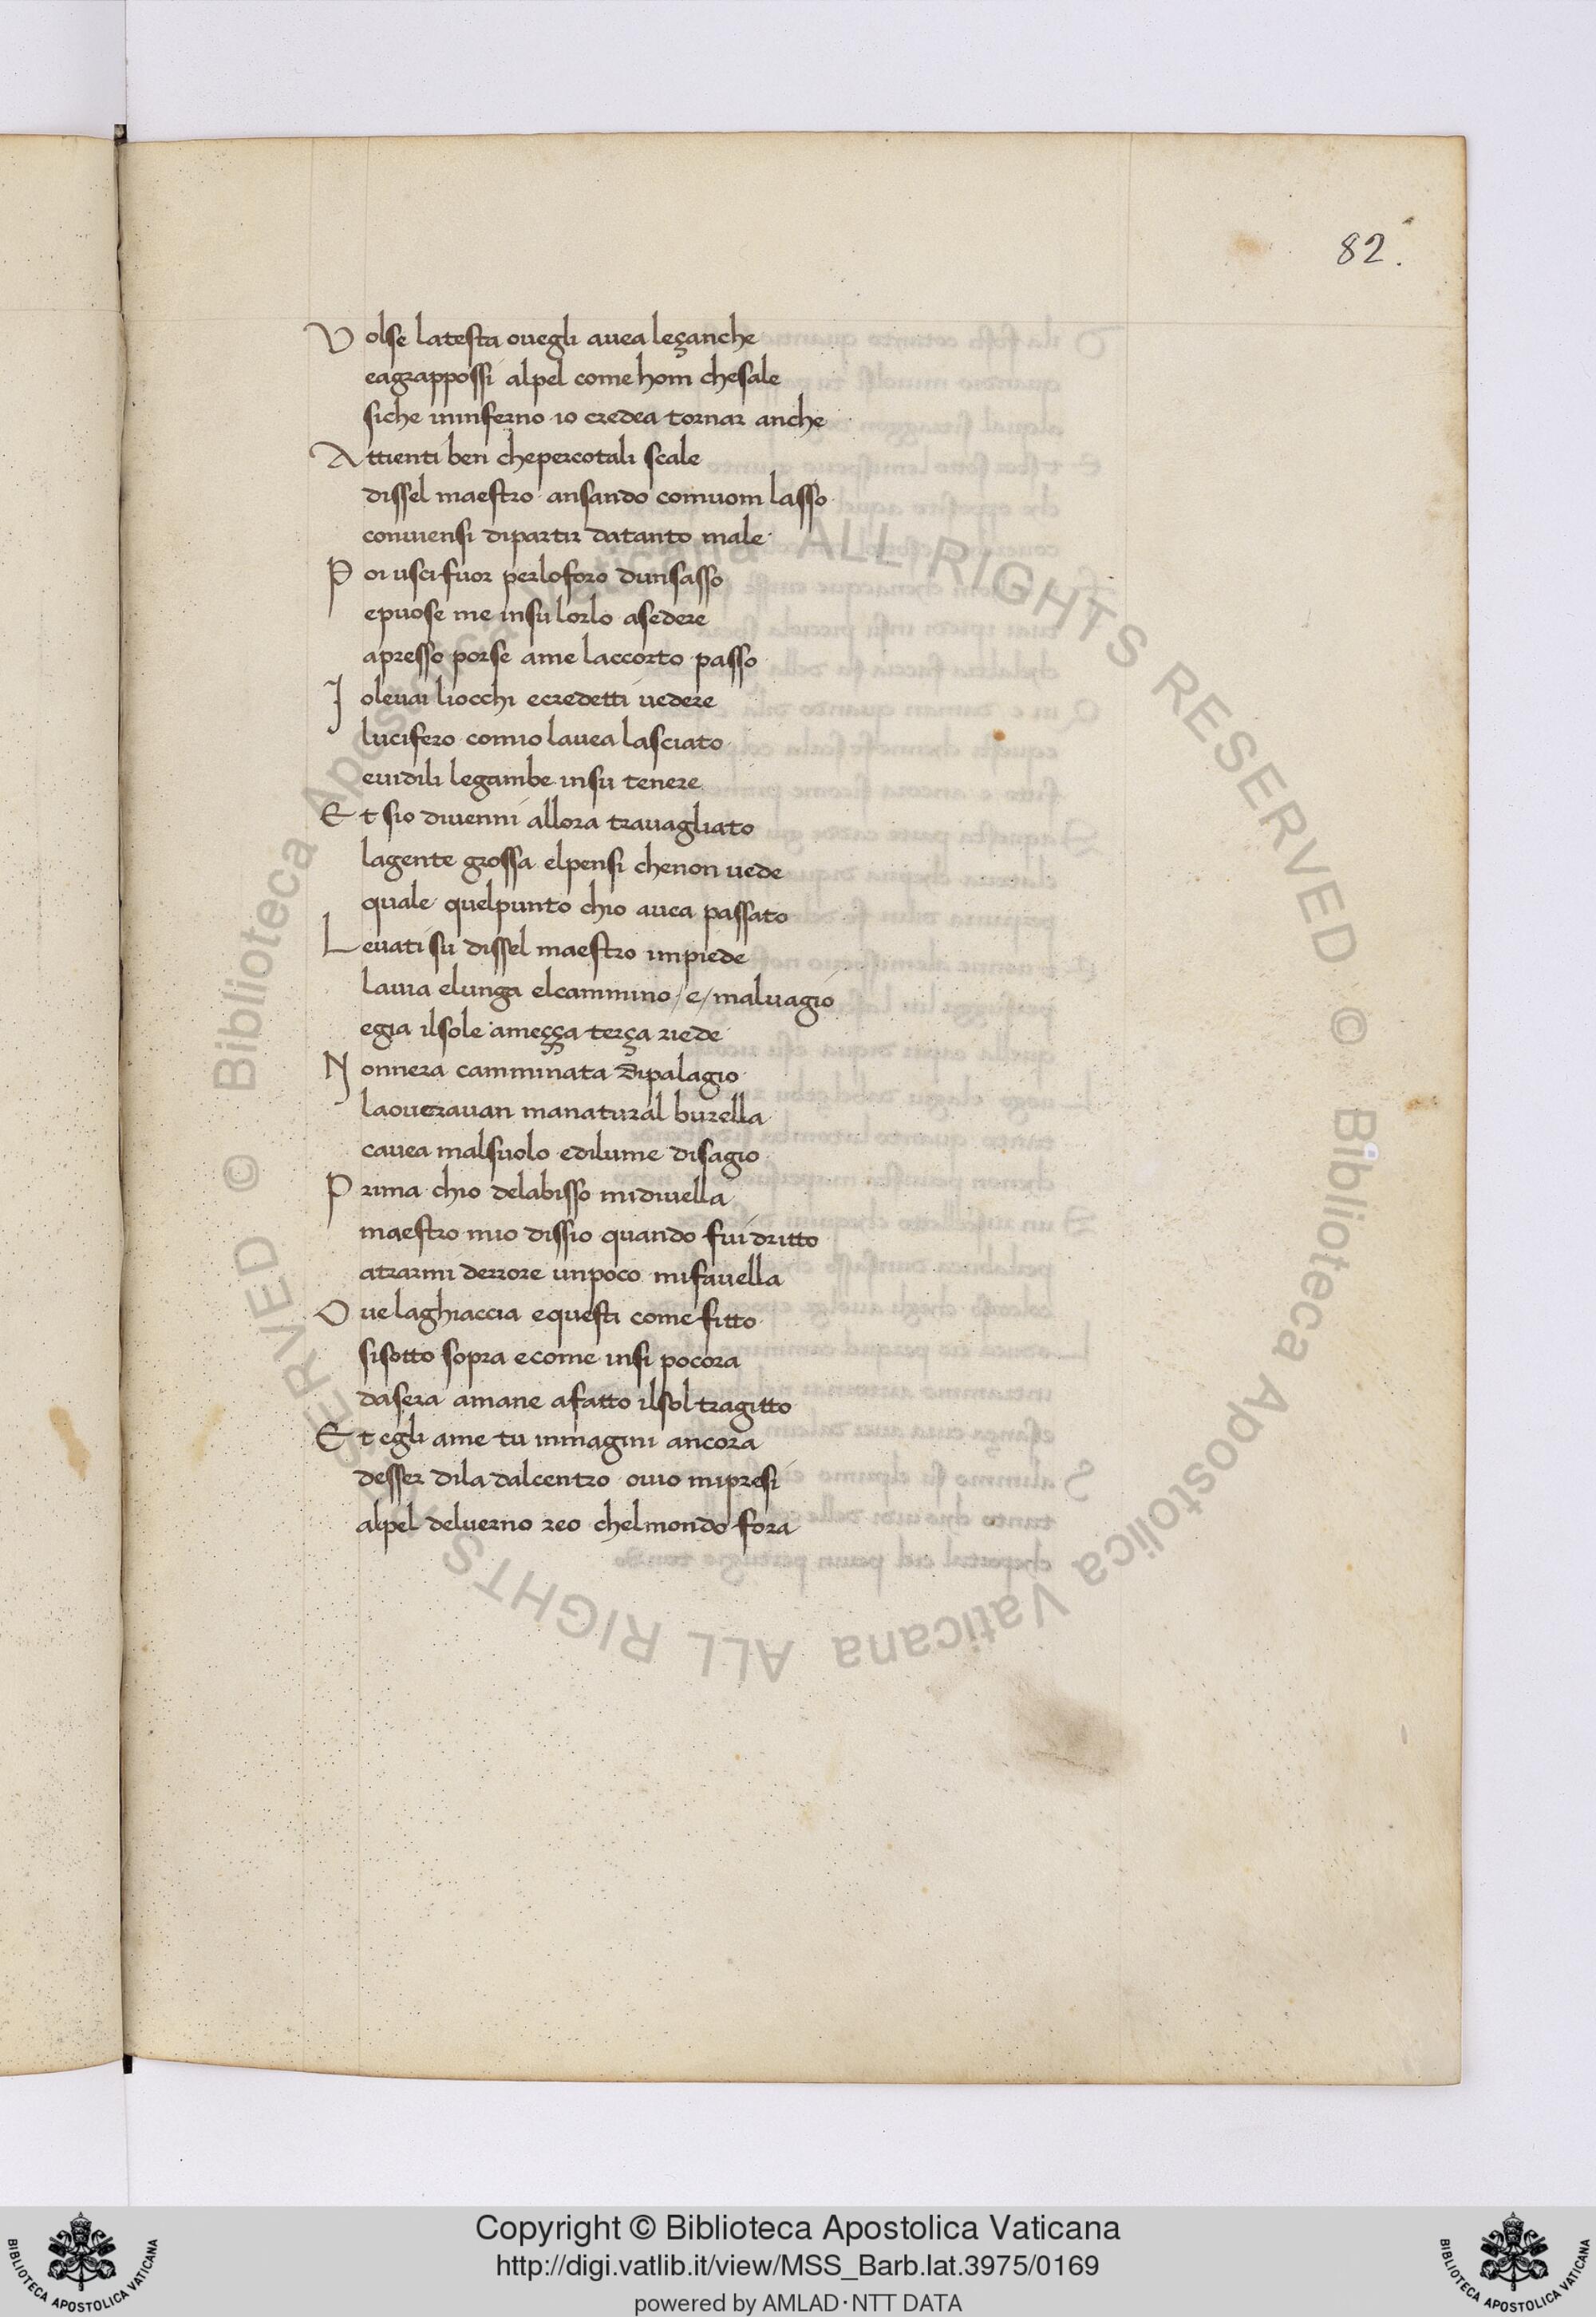 82.
Volse latesta ovegli avea leçanche
eagrappossi alpel come hom chesale
siche ininferno io credea tornar anche
Attienti ben chepercotali scale
dissel maestro ansando comuom lasso
conviensi dipartir datanto male
Poi uscifuor perloforo dunsasso
epuose me insu lorlo asedere
apresso porse ame laccorto passo
Jolevai liocchi ecredetti vedere
lucifero comio lavea lasciato
evidili legambe insu tenere
Et sio divenni allora travagliato
lagente grossa elpensi chenon vede
quale quelpunto chio avea passato
Levati su dissel maestro impiede
lavia elunga elcammino /e/ malvagio
egia ilsole ameçça terça riede
Nonnera camminata dipalagio
laoveravan manatural burella
cavea malsuolo edilume disagio
Prima chio delabisso midivella
maestro mio dissio quando fui dritto
atrarmi derrore unpoco mifavella
Ovelaghiaccia equesti come fitto
sisotto sopra ecome insi pocora
dasera amane afatto ilsol tragitto
Et egli ame tu inmagini ancora
desser dila dalcentro ovio mipresi
alpel delverno reo chelmondo fora
© Biblioteca Apostolica Vaticana ALL RIGHTS RESERVED © Biblioteca Apostolica Vaticana ALL RIGHTS RESERVED
Copyright © Biblioteca Apostolica Vaticana
http://digi.vatlib.it/view/MSS_Barb.lat.3975/0169
powered by AMLAD·NTT DATA
BIBLIOTECA APOSTOLICA VATICANA
BIBLIOTECA APOSTOLICA VATICANA